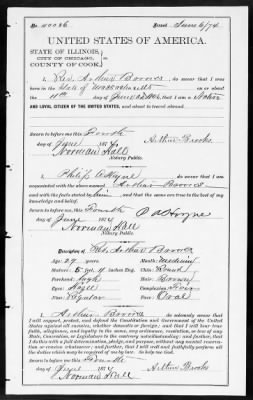 No. 40086 Issued June 6/74
UNITED STATES OF AMERICA.
STATE OF ILLINOIS,
CITY OF CHICAGO, ss.
COUNTY OF COOK.
I, Rev. Arthur Brooks, do swear that I was
born in the State of Massachusetts on or about
the 11th day of June 1845; that I am a Native
AND LOYAL CITIZEN OF THE UNITED STATES, and about to travel abroad.
Sworn to before me this Fourth
day of June 1874 Arthur Brooks
Norman Hall
Notary Public.
I, Philip A. Hoyne, do swear that I am
acquainted with the above named Arthur Brooks
and with the facts stated by him and that the same are true to the best of my
knowledge and belief.
Sworn to before me this Fourth P A Hoyne
day of June 1874
Norman Hall
Notary Public.
Description of Rev. Arthur Brooks
Age: 29 years Mouth: Medium
Stature: 5 feet inches Eng. Chin: Round
Forehead: high Hair: Brown
Eyes: Complexion: Fair
Nose: Regular Face: Oval
I, Arthur Brooks do solemnly swear that I
will support, protect, and defend the Constitution and Government of the United
States against all enemies, whether domestic or foreign; and that I will bear
true faith, allegiance, and loyalty to the same, any ordinance, resolution, or law of
any State, Convention, or Legislature to the contrary notwithstanding; and further, that
I do this with a full determination, pledge, and purpose, without any mental reservation
or evasion whatsoever; and further, that I will well and faithfully perform all
the duties which may be required of me by law. So help me God.
Sworn to before me this Fourth
day of June 1874 Arthur Brooks
Norman Hall